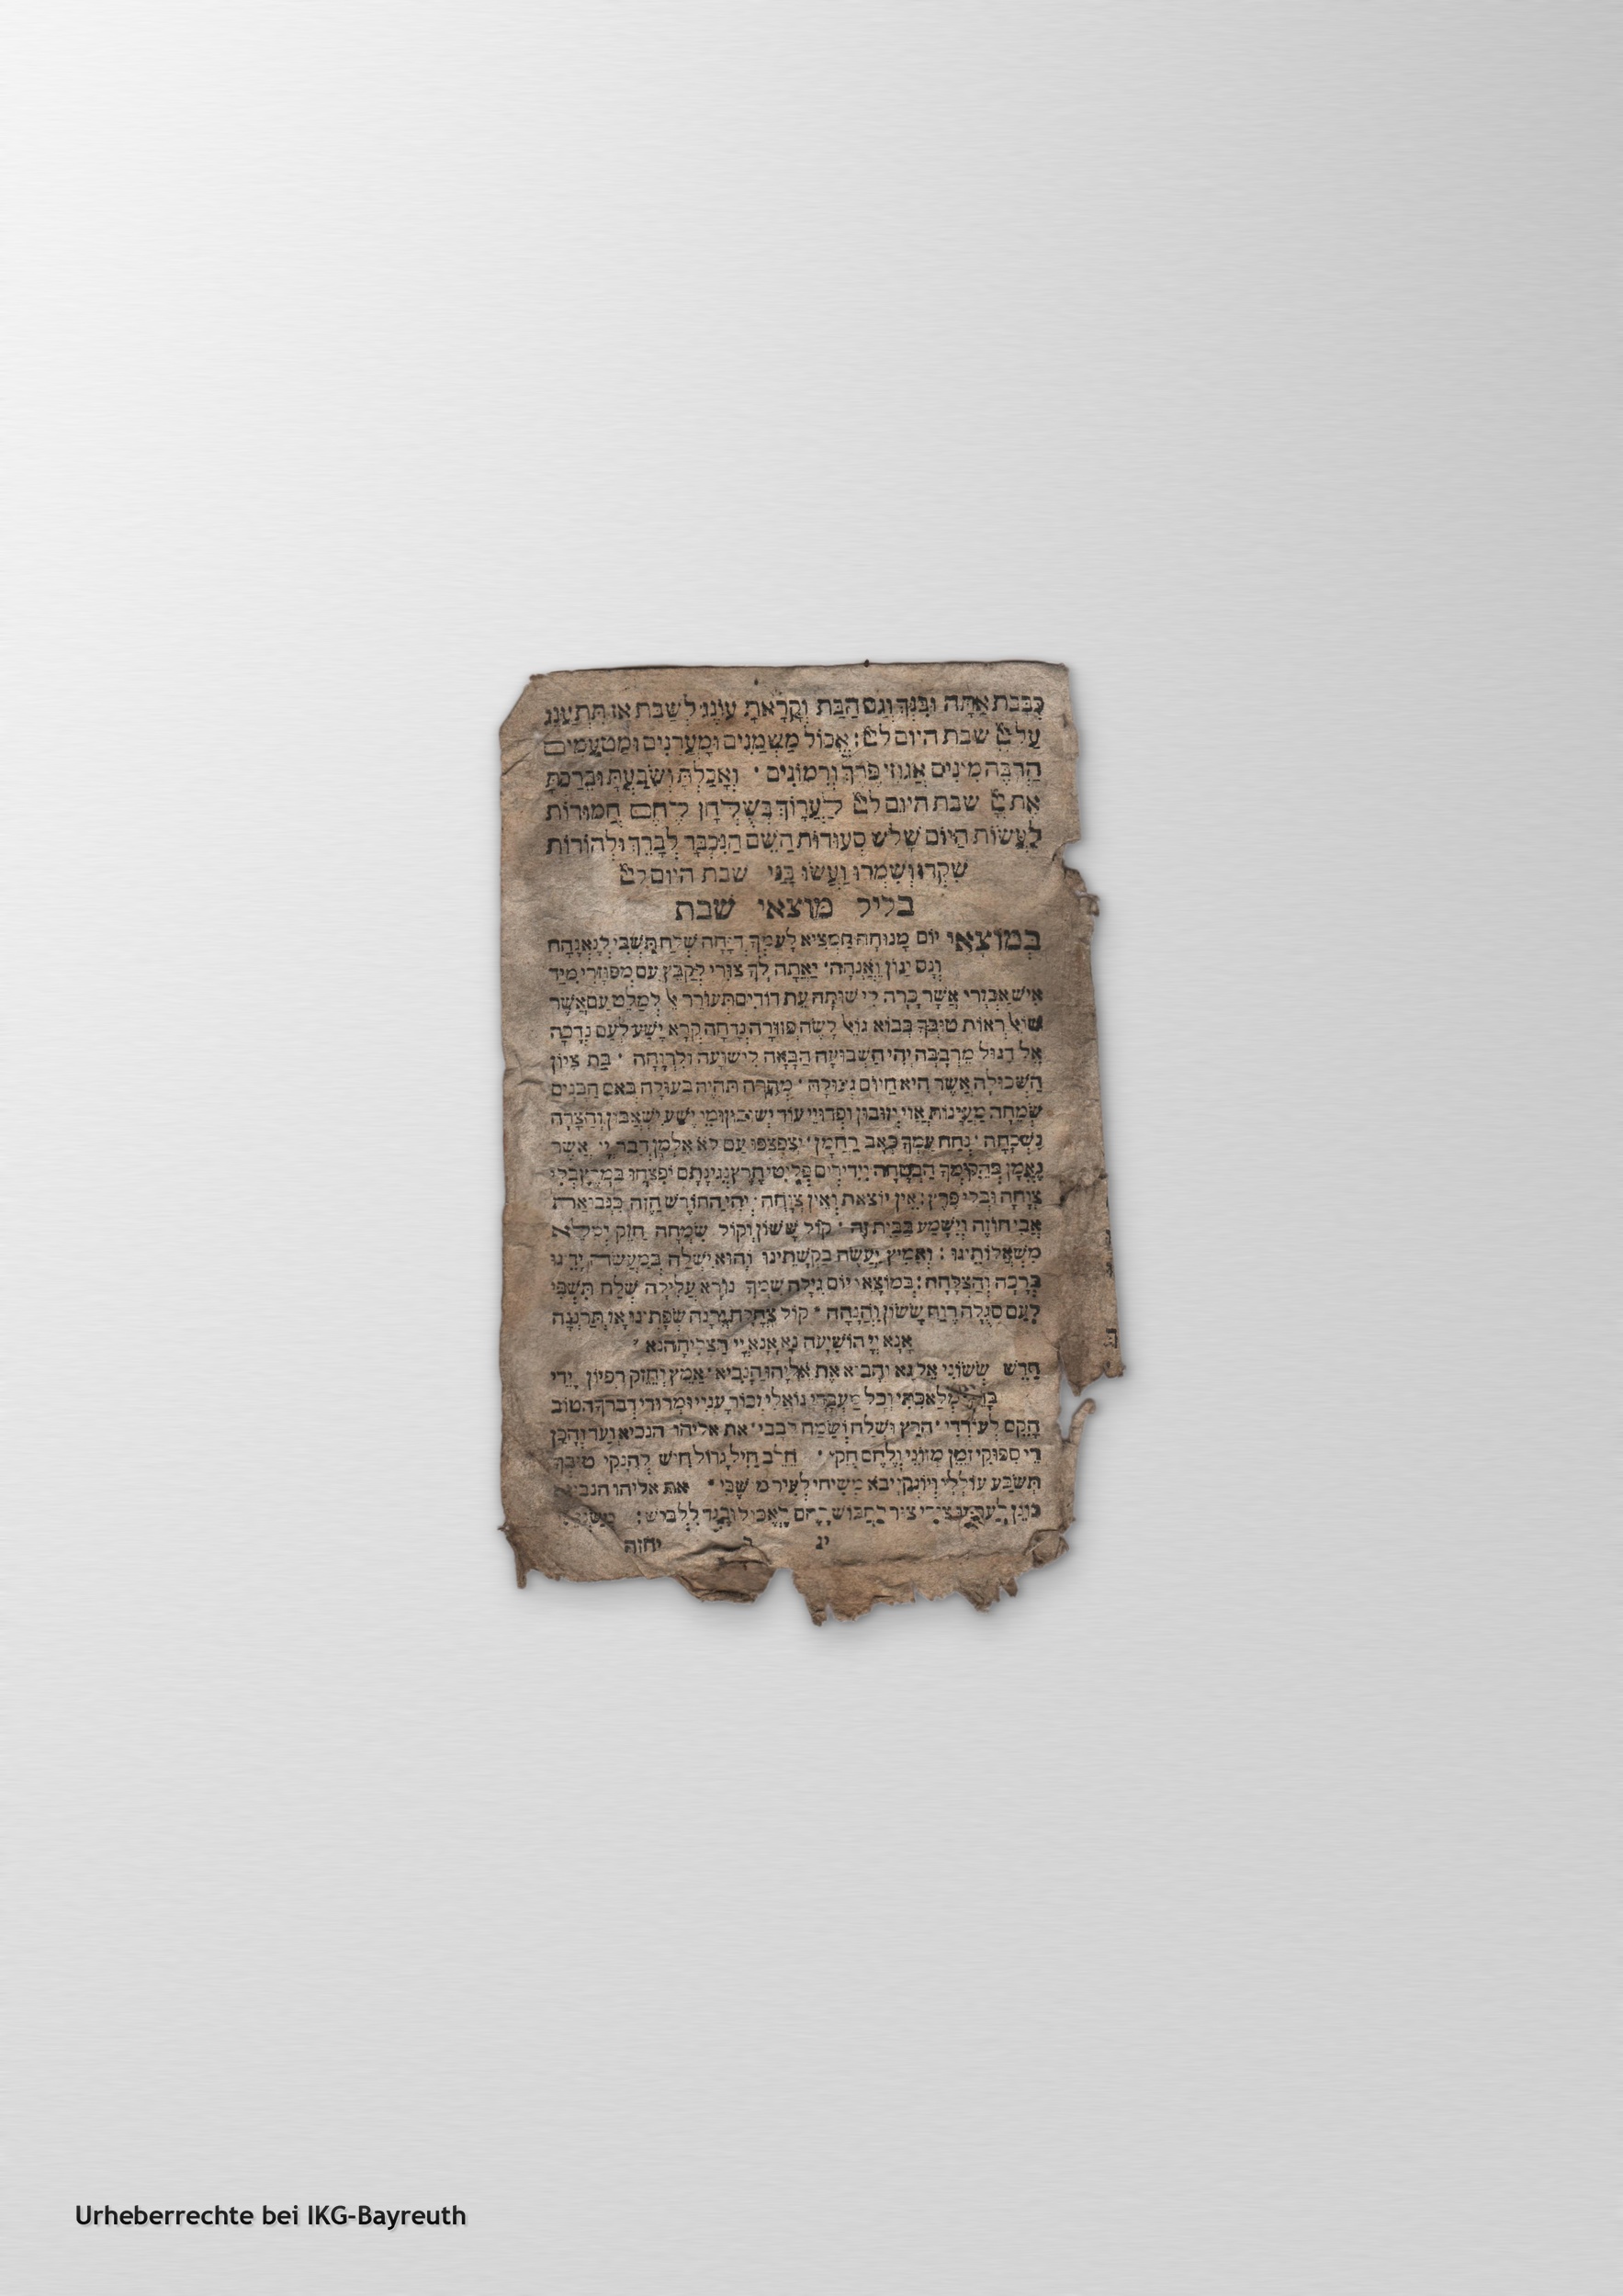 כְּבַבַּת אַתָּה וּבִנְךָ וְגַם הַבַּת וְקָרָאתָ עוֹנֶג לַשַּׁבָּת אָז תִּתְעַנַּג
עַל שבת היום אֱכוֹל מַשְׁמַנִּים וּמַעֲדַנִּים וּמַטְעַמִּים
הַרְבֵּה מִינִים אֱגוֹזֵי פֶּרֶךְ וְרִמּוֹנִים · וְאָכַלְתָּ וְשָׂבָעְתָּ וּבֵרַכְתָּ
אֶת שבת היום לַעֲרוֹךְ בְּשֻׁלְחָן לֶחֶם חֲמוּדוֹת
לַעֲשׂוֹת הַיּוֹם שָׁלֹשׁ סְעוּדוֹת הַשֵּׁם הַנִּכְבָּד לְבָרֵךְ וּלְהוֹדוֹת
שִׁקְדוּ וְשִׁמְרוּ וַעֲשׂוּ בָּנַי שבת היום
בליל מוצאי שבת
בְּמוֹצָאֵי יוֹם מְנוּחָה הַמְצִיא לְעַמְּךָ רְוָחָה שְׁלַח תִּשְׁבִּי לְנֶאֱנָחָה
וְנָס יָגוֹן וַאֲנָחָה· יָאֲתָה לְךָ צוּרִי לְקַבֵּץ עַם מְפוּזָרִי מִיַּד
אִישׁ אַכְזָרִי אֲשֶׁר כָּרָה לִי שׁוּחָה עֵת דּוֹדִים תְּעוֹרֵר לְמַלֵּט עַם אֲשֶׁר
רְאוֹת טוּבְךָ בְּבוֹא לְשֶׂה פְּזוּרָה נִדָּחָה קְרָא יֶשַׁע לְעַם נְדָבָה
אֵל דָּגוּל מֵרְבָבָה יְהִי הַשָּׁבוּעַ הַבָּאָה לִישׁוּעָה וְלִרְוָחָה · בַּת צִיּוֹן
הַשְּׁכוּלָה אֲשֶׁר הִיא הַיּוֹם גְּעוּלָה · מְהֵרָה תִּהְיֶה בְעוּלָה בְּאֵם הַבָּנִים
שְׂמֵחָה מַעֲיָנוֹת אֲזַי יְזוּבוּן וּפְדוּיֵי עוֹד יְשׁוּבוּן וּמֵי יֶשַׁע יִשְׁאֲבוּן וְהַצָּרָה
נִשְׁכָּחָה · נְחֵה עַמְּךָ כְּאָב רַחֲמָן · יְצַפְצְפוּ עַם לֹא אַלְמָן דְּבַר אֲשֶׁר
נֶאֱמָן בַּהֲקִימְךָ הַבְטָחָה וִידִידִים פְּלִיטֵי חָרֶץ נְגִינָתָם יִפְצְחוּ בְּמֶרֶץ בְּלִי
צְוָחָה וּבְלִי פֶּרֶץ: אֵין יוֹצֵאת וְאֵין צְוָחָה · יְהִי הַחוֹדֶשׁ הַזֶּה כִּנְבוּאַת
אֲבִי חוֹזֶה וְיִשָּׁמַע בְּבַיִת זֶה · קוֹל שָׂשׂוֹן וְקוֹל שִׂמְחָה חָזָק יְמַלֵּא
מִשְׁאֲלוֹתֵינוּ : וְאַמִּיץ יַעֲשֶׂה בַקָּשָׁתֵינוּ וְהוּא יִשְׁלַח בְּמַעֲשֵׂה יָדֵינוּ
בְּרָכָה וְהַצְלָחָה: בְּמוֹצָאֵי יוֹם גִּילָה שִׁמְךָ נוֹרָא עֲלִילָה שְׁלַח תִּשְׁבִּי
לְעַם סְגֻלָּה רֶוַח שָׂשׂוֹן וַהֲנָחָה · קוֹל צָהֳלָה וְרִנָּה שְׂפָתֵינוּ אָז תְּרַנֵּנָּה
אָנָּא יְיָ הוֹשִׁיעָה נָּא אָנָּא יְיָ הַצְלִיחָה נָא
חַדֵּשׁ שְׂשׂוֹנִי אֵל נָא וְהָבִיא אֶת אֵלִיָּהוּ הַנָּבִיא · אַמֵּץ וְחַזֵּק רִפְיוֹן יָדִי
מְלַאכְתִּי וְכָל מַעְבָּדִי גוֹאֲלִי זְכוֹר עָנְיִי וּמְרוּדִי דְּבָרְךָ הַטּוֹב
הָקֵם לְעוֹדְדִי · הָרֵץ וּשְׁלַח וְשַׂמַּח לְבָבִי · את אליהו הנביא וַעֵד וְהָכֵן
דֵּי סִפּוּקִי זַמֵּן מְזוֹנִי וְלֶחֶם חֻקִּי · חֵלֶב חַיִל גָּדוֹל חִישׁ לְהָנִקִי טוּבְךָ
תַּשְׂבַּע עוֹלָלַי וְיוֹנְקַי יָבֹא מְשִׁיחִי לְעִיר מוֹשָׁבִי · את אליהו הנביא
יג
יחזה
Urheberrechte bei IKG-Bayreuth